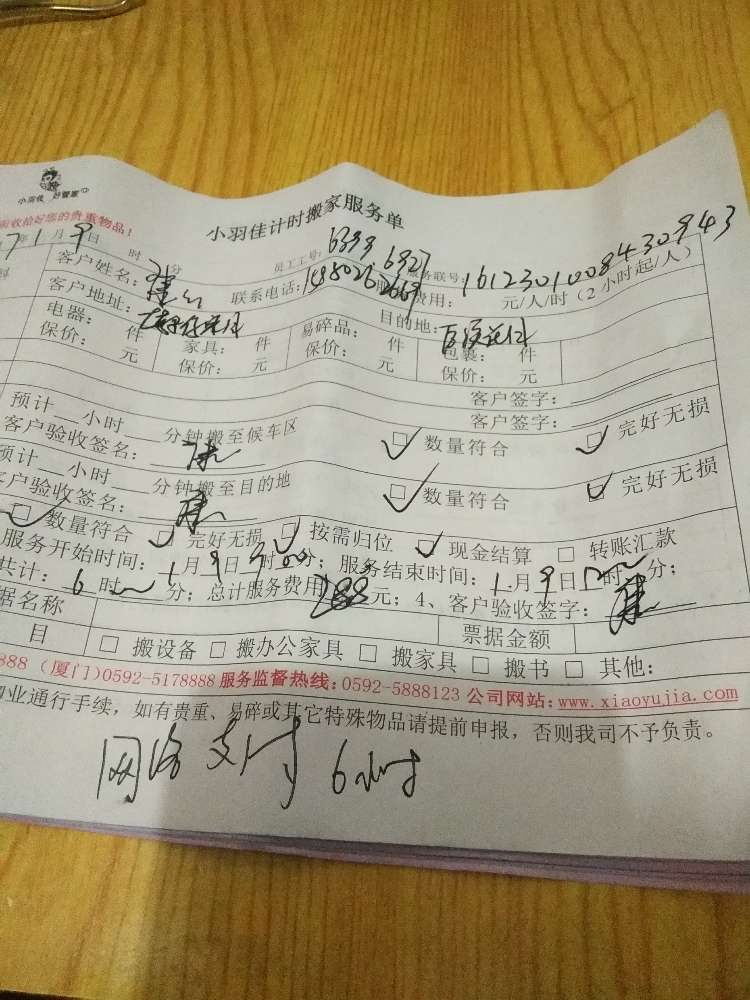 小羽佳 好管家
收拾好您的贵重物品！
小羽佳计时搬家服务单
7年1月9日 时 分 员工工号：6399.6921 服务联号：1612301008430943
客户姓名： 联系电话： 费用： 元/人/时（2小时起/人）
客户地址： 目的地：
电器： 件 家具： 件 易碎品： 件 包裹： 件
保价： 元 保价： 元 保价： 元 保价： 元
客户签字：
预计 小时 分钟搬至候车区 客户签字：
客户验收签名： 数量符合 完好无损
预计 小时 分钟搬至目的地
客户验收签名： 数量符合 完好无损
数量符合 完好无损 按需归位 现金结算 转账汇款
服务开始时间：1月9日 时 分；服务结束时间：1月9日 时 分；
共计：6时 分；总计服务费用288元；4、客户验收签字：
据名称 票据金额
目 搬设备 搬办公家具 搬家具 搬书 其他：
888（厦门）0592-5178888 服务监督热线：0592-5888123 公司网站：www.xiaoyujia.com
业通行手续，如有贵重、易碎或其它特殊物品请提前申报，否则我司不予负责。
网络支付 6小时